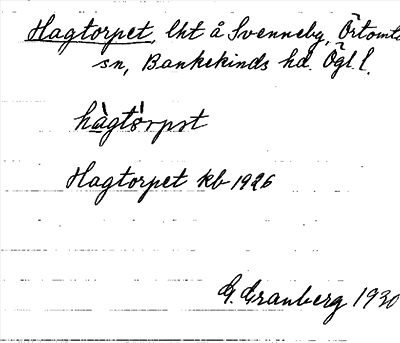 Hagtorpet, lht å Svenneby, Örtomta
sn, Bankekinds hd. Ögl. l.
hàgtórpət
Hagtorpet kb 1926
G. Granberg 1930